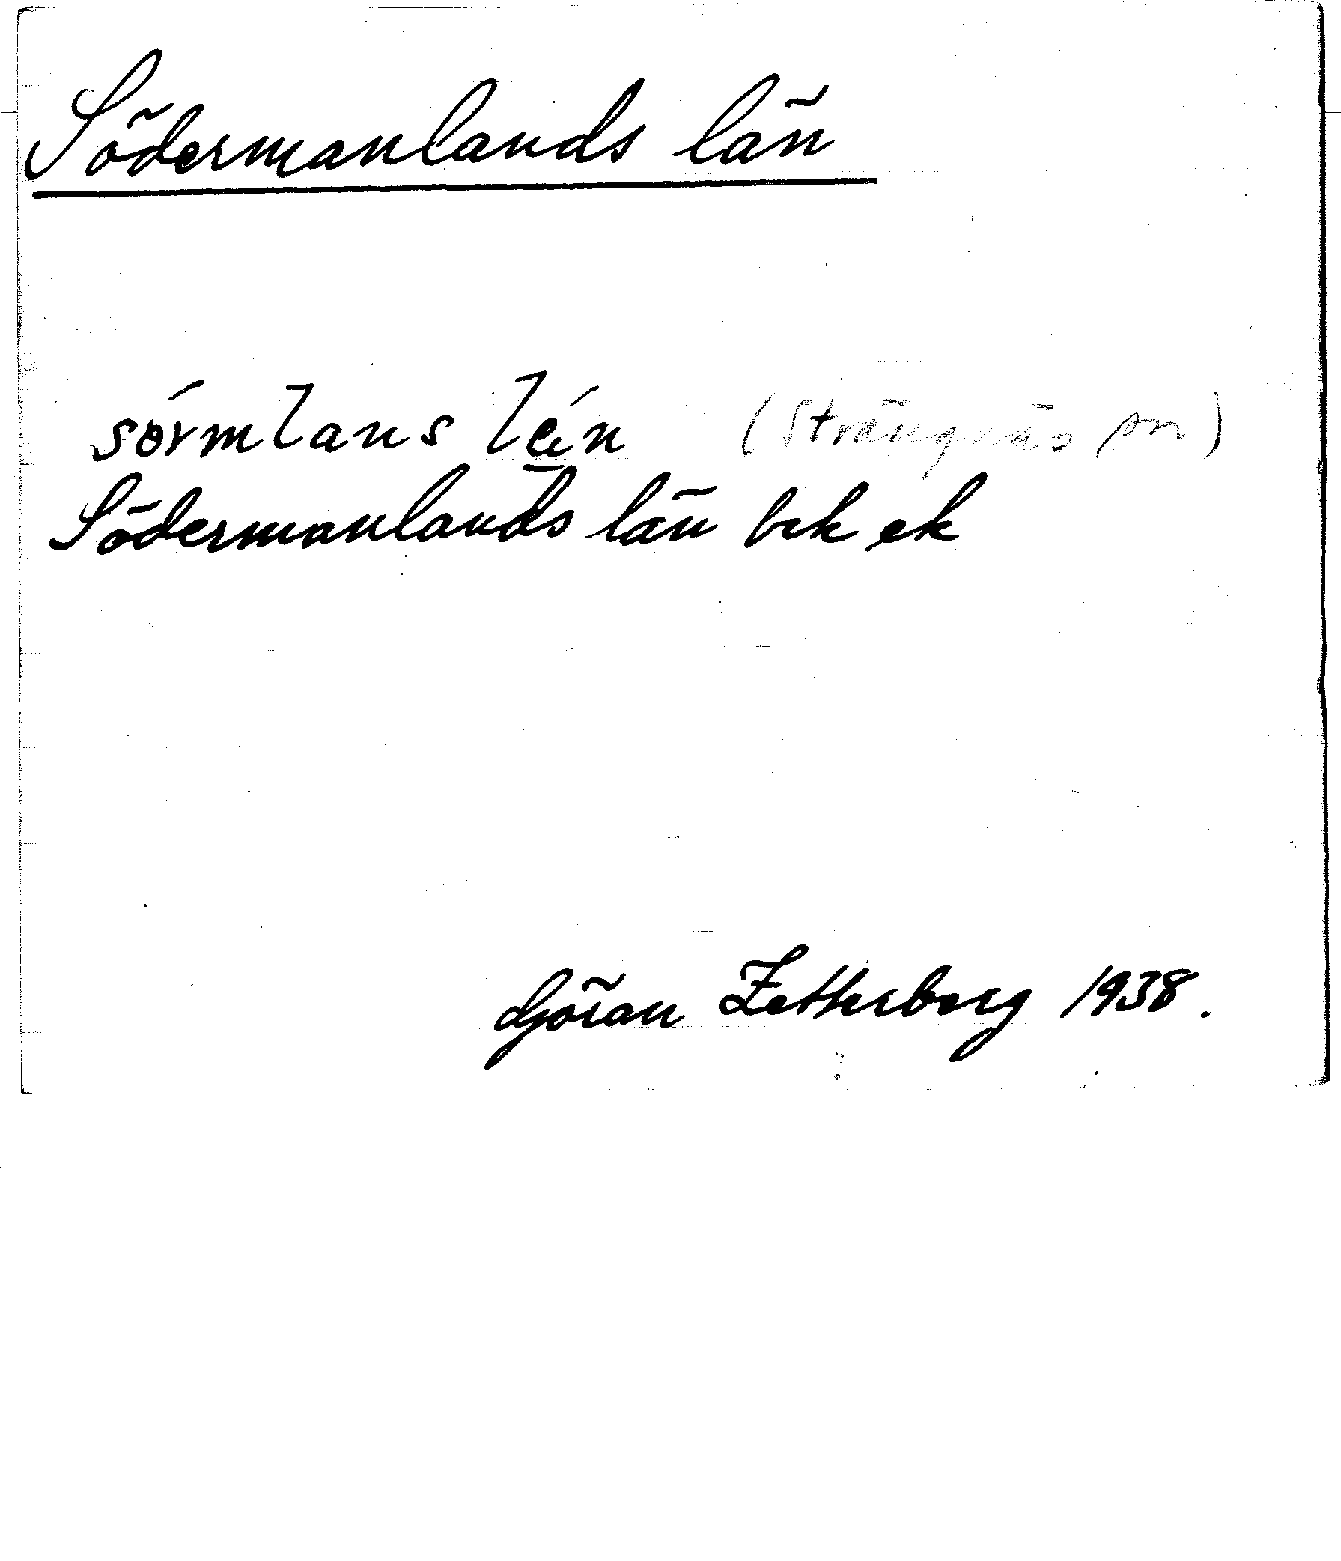 Södermanlands län
sörmlans län (Strängnäs sn)
Södermanlands län bek ek
Göran Zetterberg 1938.